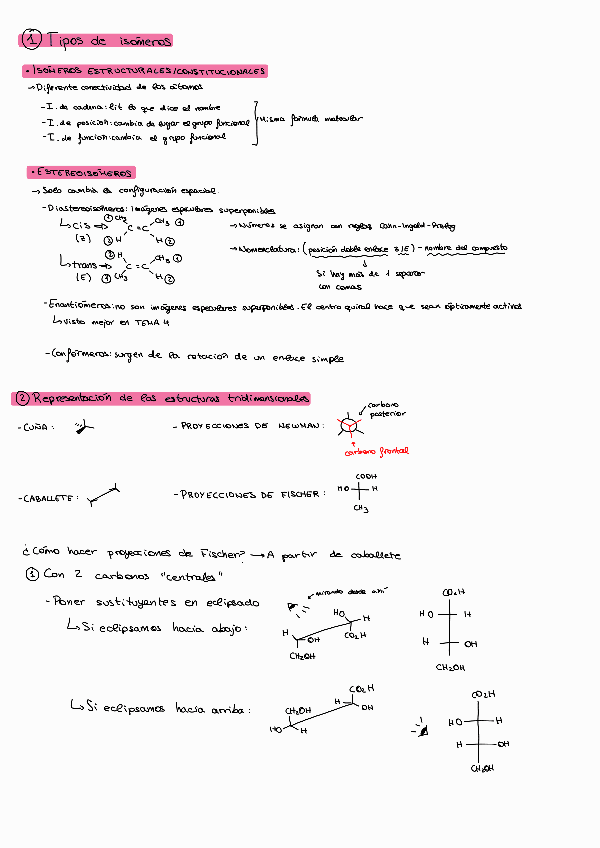 ① Tipos de isómeros
· ISÓMEROS ESTRUCTURALES/CONSTITUCIONALES
→ Diferente conectividad de los átomos
- I. de cadena: lit lo que dice el nombre
- I. de posición: cambia de lugar el grupo funcional
- I. de función: cambia el grupo funcional
Misma fórmula molecular
· ESTEREOISÓMEROS
→ Solo cambia la configuración espacial.
- Diastereoisómeros: imágenes especulares superponibles
↳ cis → ① CH3 C = C CH3 ①
(Z) ② H H ②
→ Números se asignan con reglas Cahn-Ingold-Prelog
↳ trans → ② H C = C CH3 ①
(E) ① CH3 H ②
→ Nomenclatura: (posición doble enlace Z/E) - nombre del compuesto
Si hay más de 1 separar
con comas
- Enantiómeros: no son imágenes especulares superponibles. El centro quiral hace que sean ópticamente activos
↳ Visto mejor en TEMA 4
- Confórmeros: surgen de la rotación de un enlace simple
② Representación de las estructuras tridimensionales
- CUÑA:
- PROYECCIONES DE NEWMAN:
carbono
posterior
carbono frontal
- CABALLETE:
- PROYECCIONES DE FISCHER:
COOH
HO H
CH3
¿Cómo hacer proyecciones de Fischer? → A partir de caballete
① Con 2 carbonos "centrales"
- Poner sustituyentes en eclipsado
mirando desde ahí
↳ Si eclipsamos hacia abajo:
HO H
H OH CO2H
CH2OH
CO2H
HO H
H OH
CH2OH
↳ Si eclipsamos hacia arriba:
CO2H
CH2OH H OH
HO H
CO2H
HO H
H OH
CH2OH